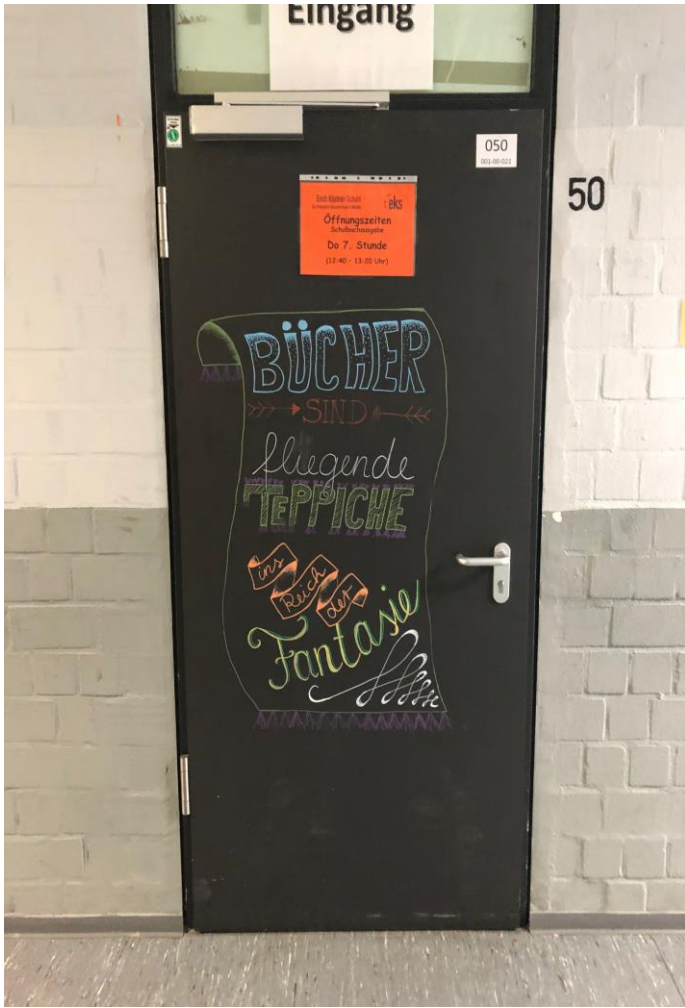 Eingang
050
001-00-021
50
Erich Kästner Schule
eks
Öffnungszeiten
Schulbuchausgabe
Do 7. Stunde
(12:40 - 13:20 Uhr)
BÜCHER
SIND
fliegende
TEPPICHE
ins
Reich
der
Fantasie